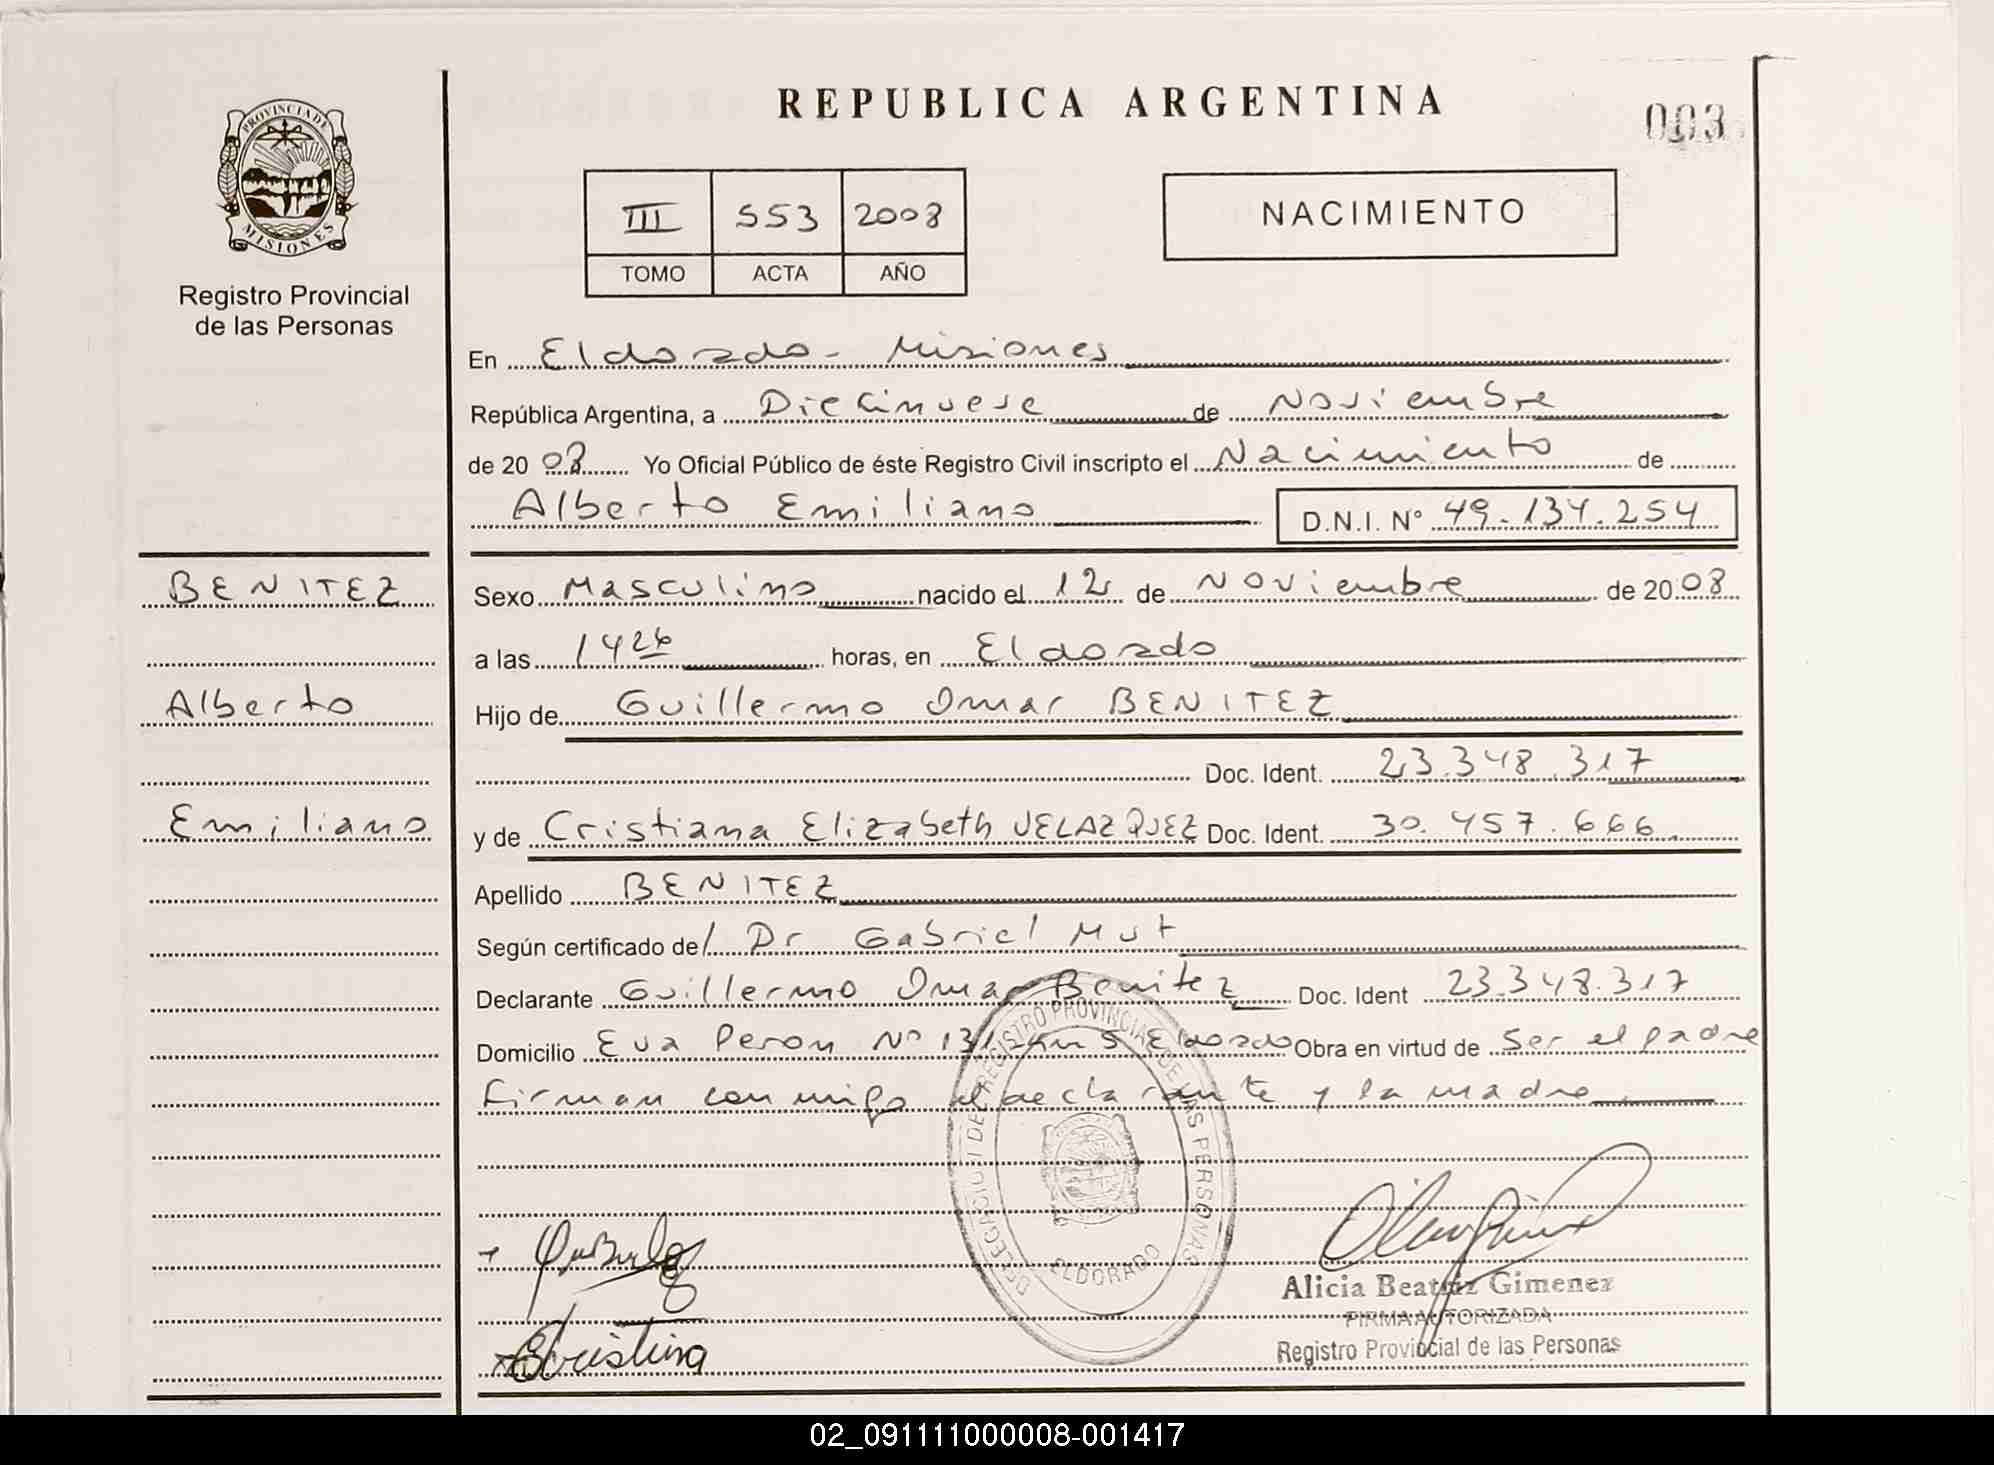 REPUBLICA ARGENTINA
003
PROVINCIA DE
MISIONES
Registro Provincial
de las Personas
III 553 2008
TOMO ACTA AÑO
NACIMIENTO
En Eldorado - Misiones
República Argentina, a Diecinueve de Noviembre
de 20 08 Yo Oficial Público de éste Registro Civil inscripto el Nacimiento de
Alberto Emiliano D.N.I. N° 49.134.254
BENITEZ
Sexo Masculino nacido el 12 de Noviembre de 20 08
a las 14 26 horas, en Eldorado
Alberto
Hijo de Guillermo Omar BENITEZ
Doc. Ident. 23.348.317
Emiliano
y de Cristiana Elizabeth VELAZQUEZ Doc. Ident. 30.457.666.
Apellido BENITEZ
Según certificado de/ Dr Gabriel Mut
Declarante Guillermo Omar Benitez Doc. Ident 23.348.317
Domicilio Eva Peron N° Eldorado Obra en virtud de Ser el padre
Firman conmigo el declarante y la madre.
DELEGACION DEL REGISTRO PROVINCIAL DE LAS PERSONAS
ELDORADO
Cristina
Alicia Beatriz Gimenez
FIRMA AUTORIZADA
Registro Provincial de las Personas
02_091111000008-001417